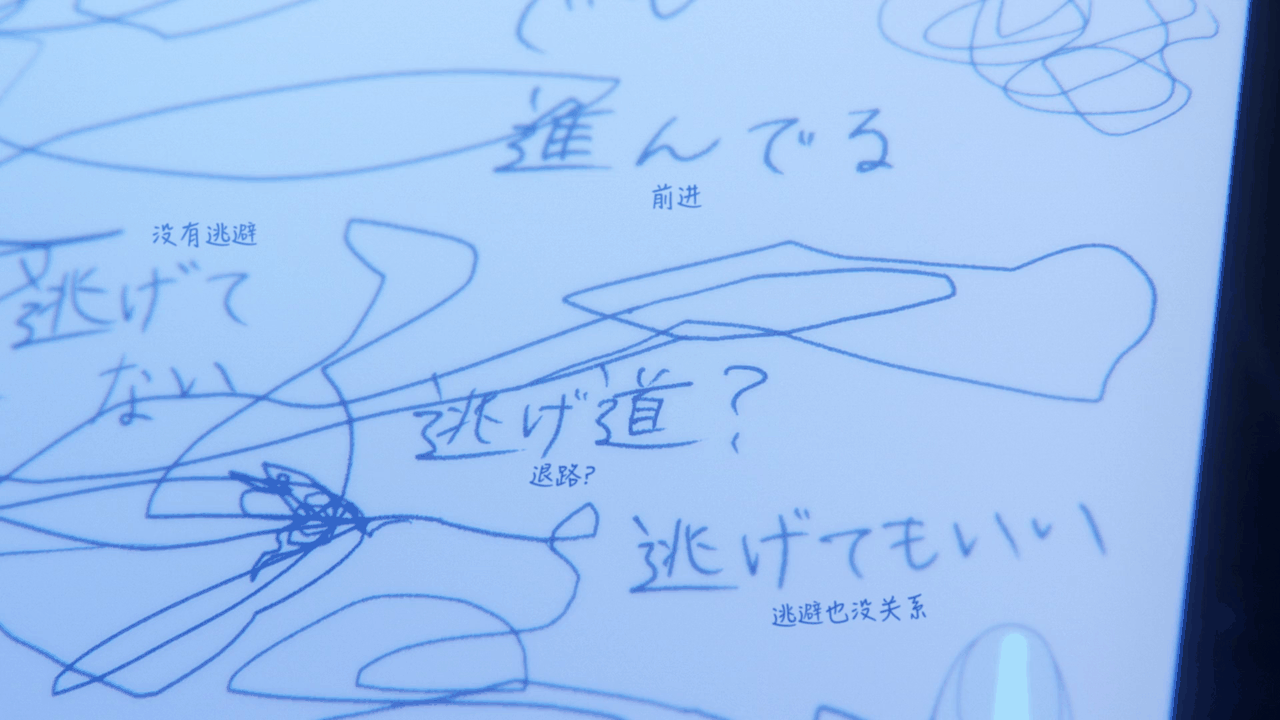 でも
進んでる
前进
没有逃避
逃げて
ない
逃げ道？
退路?
逃げてもいい
逃避也没关系